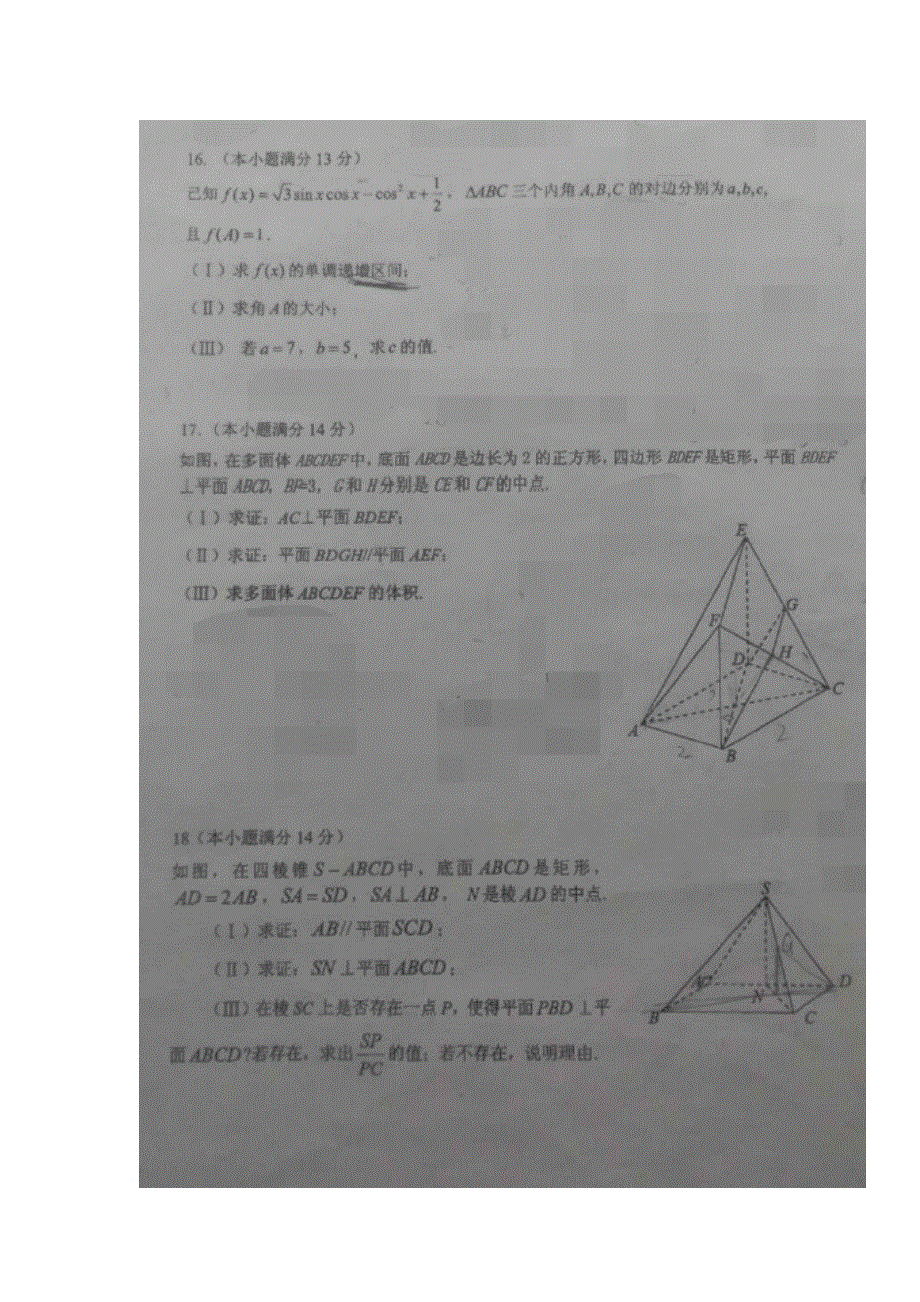 16. （本小题满分 13 分）
已知 f(x) = √3 sin x cos x − cos² x + 1/2， ΔABC 三个内角 A,B,C 的对边分别为 a,b,c,
且 f(A) = 1.
（Ⅰ）求 f(x) 的单调递增区间；
（Ⅱ）求角 A 的大小；
（Ⅲ） 若 a = 7， b = 5， 求 c 的值.
17.（本小题满分 14 分）
如图，在多面体 ABCDEF 中，底面 ABCD 是边长为 2 的正方形，四边形 BDEF 是矩形，平面 BDEF
⊥平面 ABCD，BF=3，G 和 H 分别是 CE 和 CF 的中点.
（Ⅰ）求证：AC⊥平面 BDEF；
（Ⅱ）求证：平面 BDGH//平面 AEF；
（Ⅲ）求多面体 ABCDEF 的体积.
E
G
F
D
H
C
A
B
2
2
18（本小题满分 14 分）
如图，在四棱锥 S − ABCD 中，底面 ABCD 是矩形，
AD = 2AB，SA = SD，SA ⊥ AB， N 是棱 AD 的中点.
（Ⅰ）求证：AB// 平面 SCD；
（Ⅱ）求证：SN ⊥ 平面 ABCD；
（Ⅲ）在棱 SC 上是否存在一点 P，使得平面 PBD ⊥ 平
面 ABCD？若存在，求出 SP/PC 的值；若不存在，说明理由.
S
A
N
D
B
C